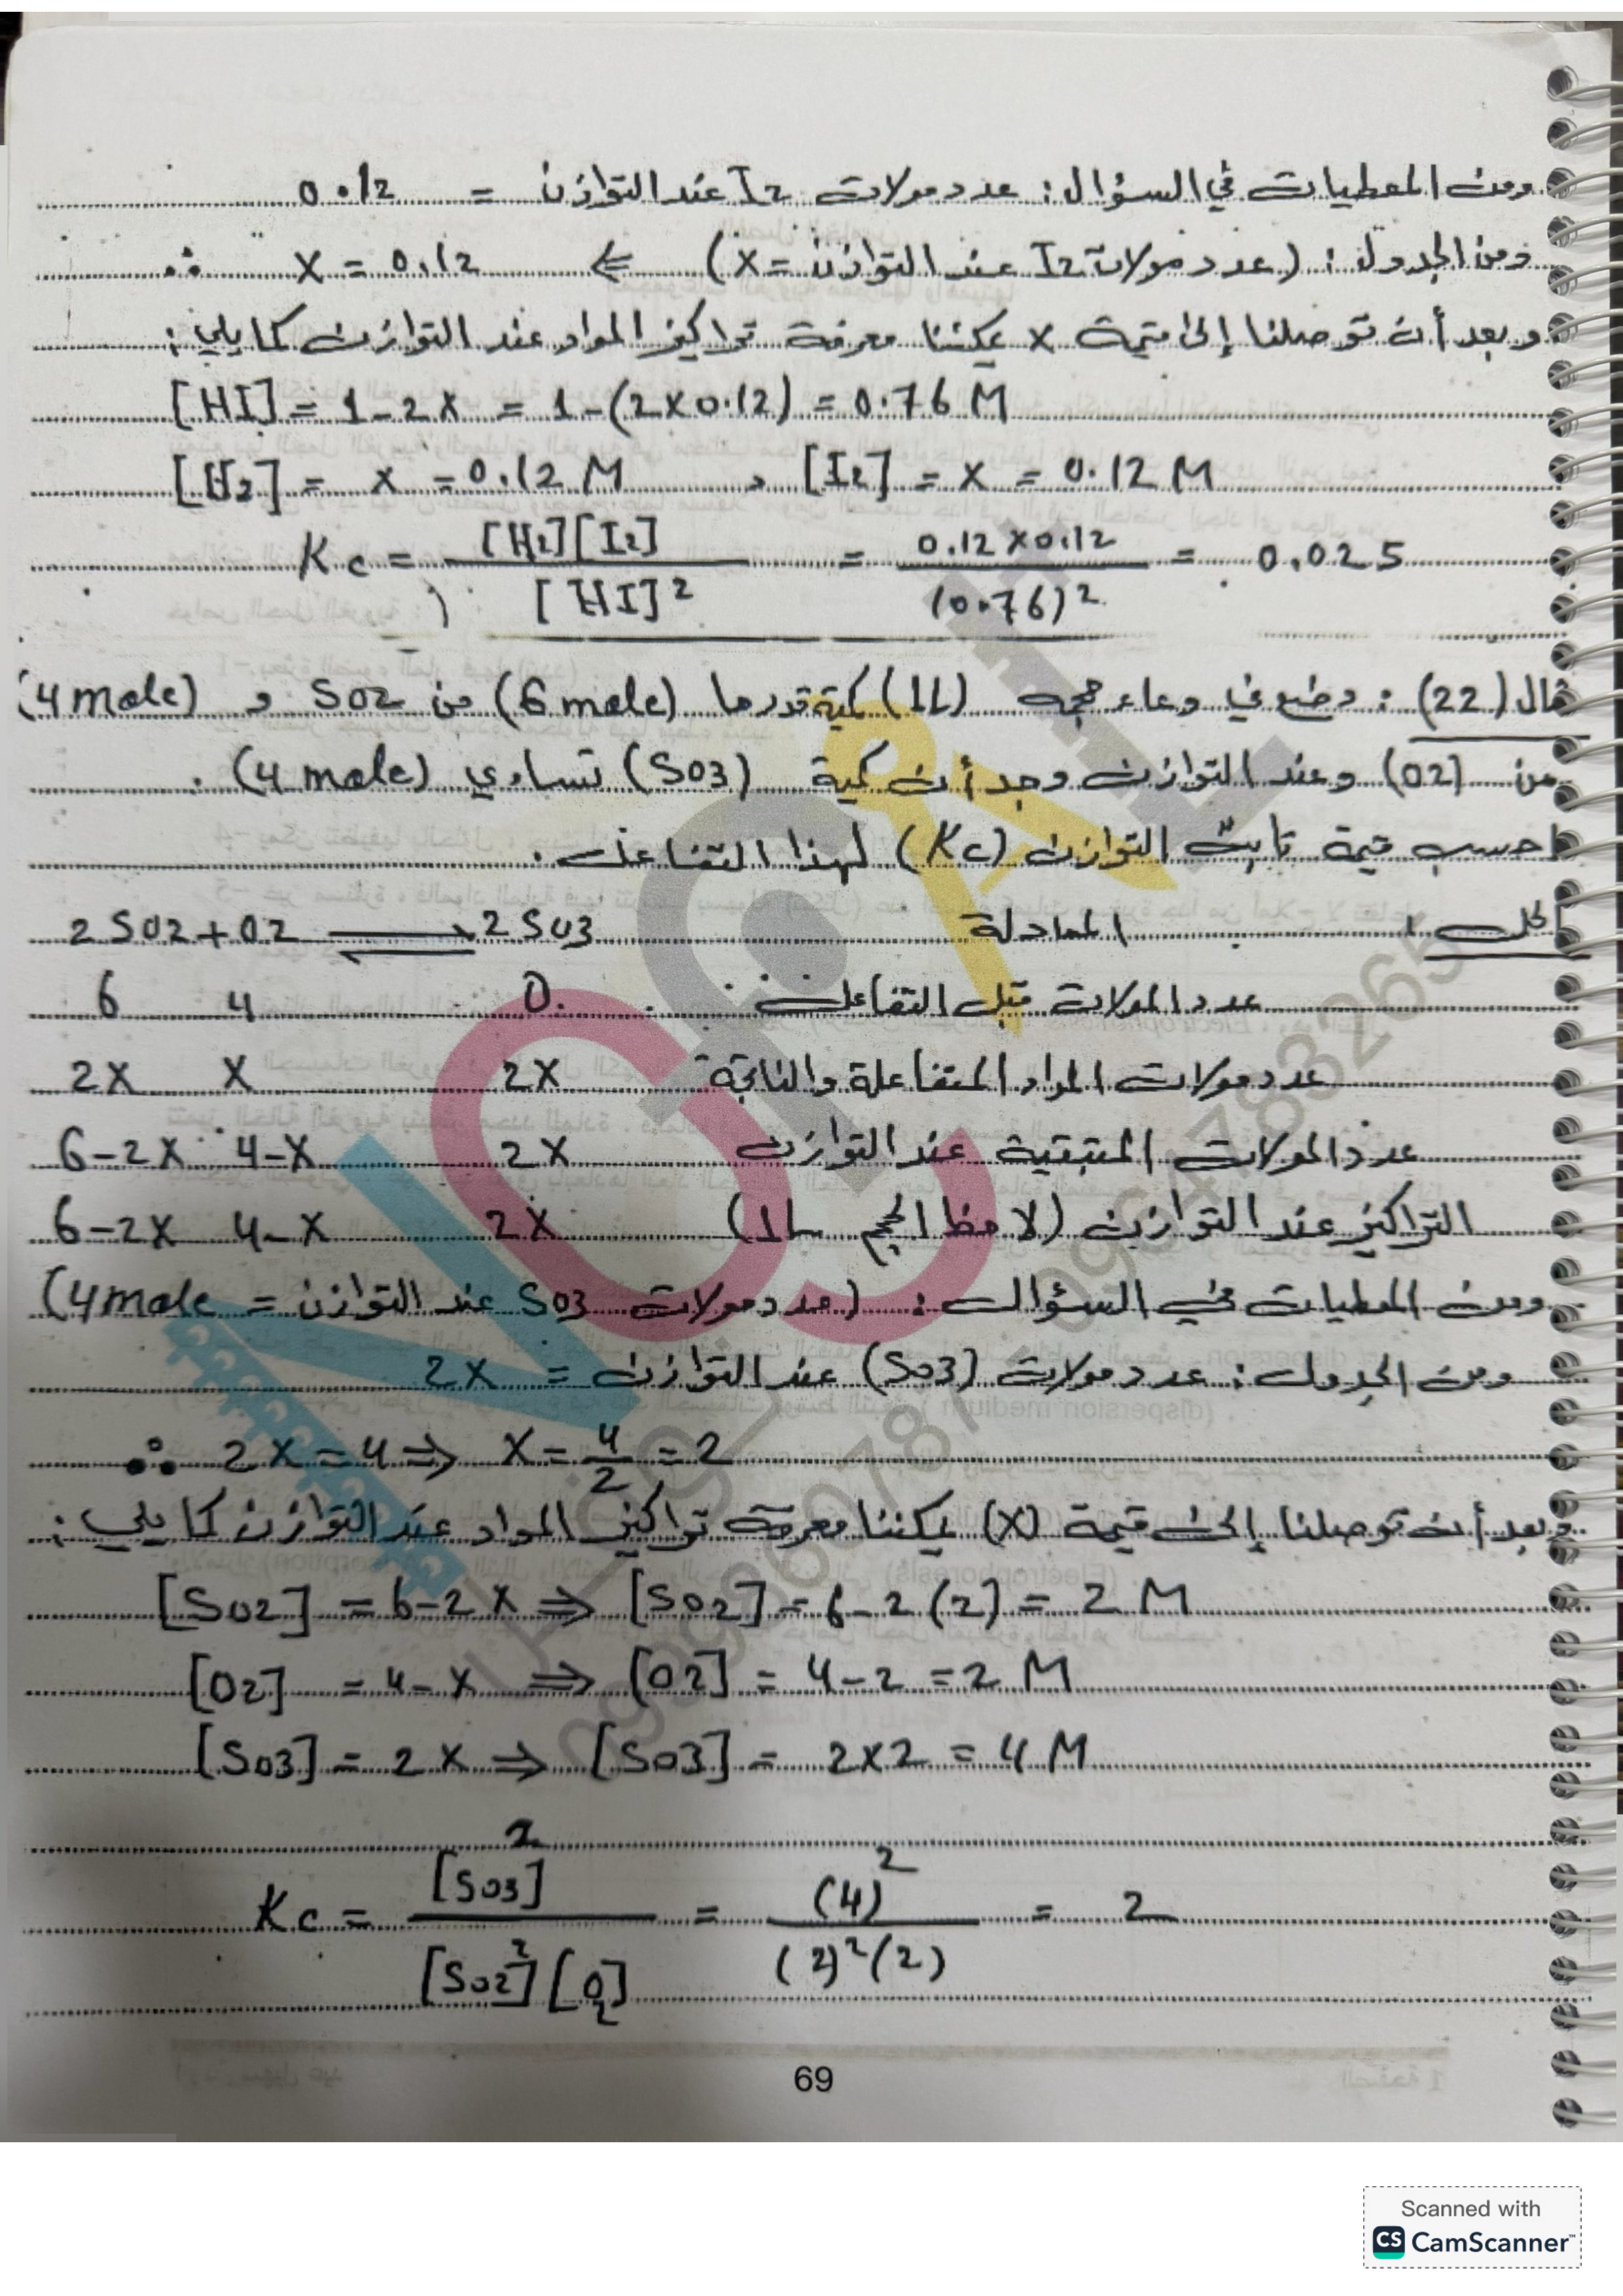 ومن المعطيات في السؤال: عدد مولات I2 عند التوازن = 0.12
ومن الجدول: (عدد مولات I2 عند التوازن = x) ⇐ x = 0.12 ∴
وبعد أن توصلنا إلى قيمة x يمكننا معرفة تراكيز المواد عند التوازن كما يلي:
[HI] = 1-2x = 1-(2x0.12) = 0.76 M
[H2] = x = 0.12 M , [I2] = x = 0.12 M
Kc = [H2][I2] / [HI]² = 0.12 x 0.12 / (0.76)² = 0.025
مثال (22): وضع في وعاء حجمه (1L) كمية قدرها (6 mole) من SO2 و (4 mole)
من (O2) وعند التوازن وجد أن كمية (SO3) تساوي (4 mole).
احسب قيمة ثابت التوازن (Kc) لهذا التفاعل.
الحل: المعادلة 2 SO2 + O2 ⇌ 2 SO3
عدد المولات قبل التفاعل 6 4 0
عدد مولات المواد المتفاعلة والناتجة 2X X 2X
عدد المولات المتبقية عند التوازن 6-2X 4-X 2X
التراكيز عند التوازن (لاحظ الحجم 1L) 6-2X 4-X 2X
ومن المعطيات في السؤال: (عدد مولات SO3 عند التوازن = 4 mole)
ومن الجدول: عدد مولات (SO3) عند التوازن = 2X
∴ 2X = 4 ⇒ X = 4/2 = 2
وبعد أن توصلنا إلى قيمة (X) يمكننا معرفة تراكيز المواد عند التوازن كما يلي:
[SO2] = 6-2X ⇒ [SO2] = 6-2(2) = 2 M
[O2] = 4-X ⇒ [O2] = 4-2 = 2 M
[SO3] = 2X ⇒ [SO3] = 2x2 = 4 M
Kc = [SO3]² / [SO2]² [O2] = (4)² / (2)² (2) = 2
69
Scanned with
CS CamScanner